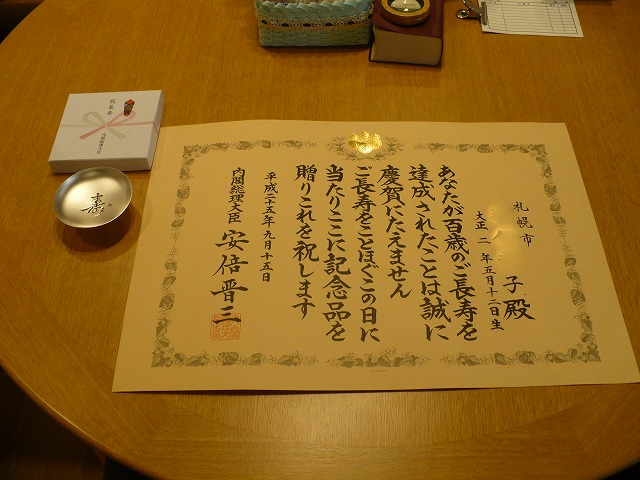 札幌市
子殿
大正二年五月十二日生
あなたが百歳のご長寿を
達成されたことは誠に
慶賀にたえません
ご長寿をことほぐこの日に
当たりここに記念品を
贈りこれを祝します
平成二十五年九月十五日
内閣総理大臣 安倍晋三
祝長寿
内閣総理大臣
寿